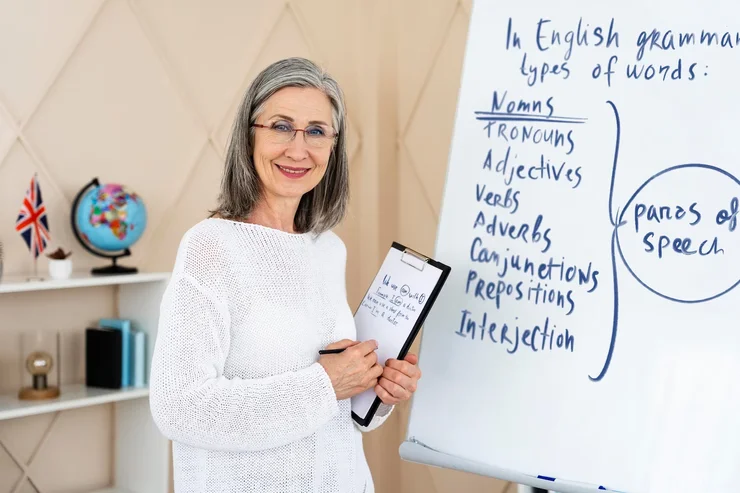 In English grammar
types of words:
Nomns
PRONOUNS
Adjectives
Verbs
Adverbs
Conjunetions
Prepositions
Interjection
parzs of
speech